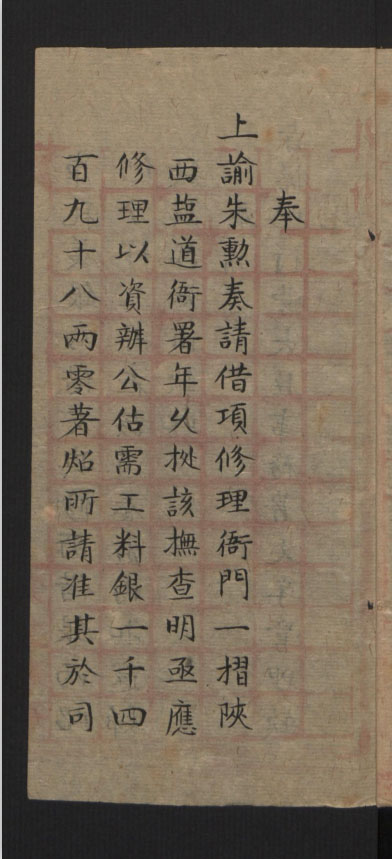 奉
上諭朱勲奏請借項修理衙門一摺陝
西塩道衙署年乆據該撫查明亟應
修理以資辦公估需工料銀一千四
百九十八兩零著照所請准其於司